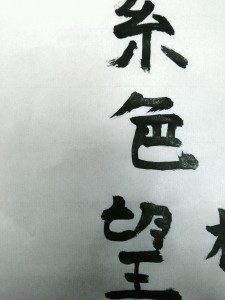 糸色望